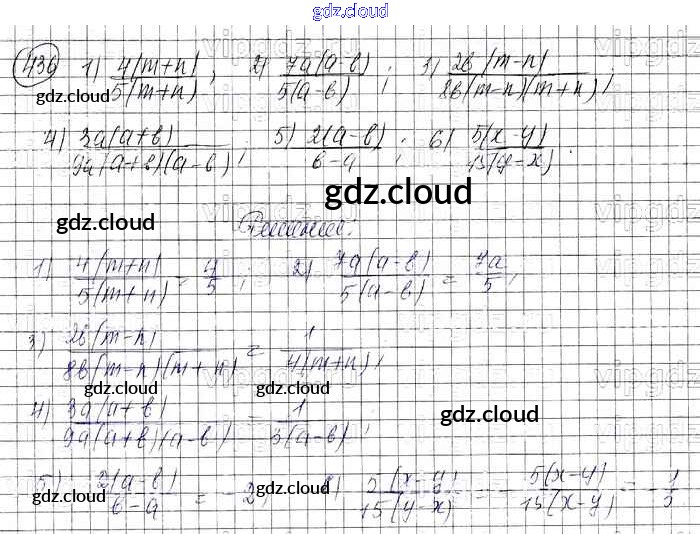 gdz.cloud
436 1) 4(m+n)/5(m+n); 2) 7a(a-b)/5(a-b); 3) 2b(m-n)/8b(m-n)(m+n);
gdz.cloud
4) 3a(a+b)/9a(a+b)(a-b); 5) 2(a-b)/b-a; 6) 5(x-y)/15(y-x).
gdz.cloud
gdz.cloud gdz.cloud
Решение:
1) 4(m+n)/5(m+n) = 4/5; 2) 7a(a-b)/5(a-b) = 7a/5;
3) 2b(m-n)/8b(m-n)(m+n) = 1/4(m+n);
gdz.cloud gdz.cloud
4) 3a(a+b)/9a(a+b)(a-b) = 1/3(a-b);
gdz.cloud
5) 2(a-b)/b-a = -2; 6) 5(x-y)/15(y-x) = -5(x-y)/15(x-y) = -1/3
gdz.cloud gdz.cloud